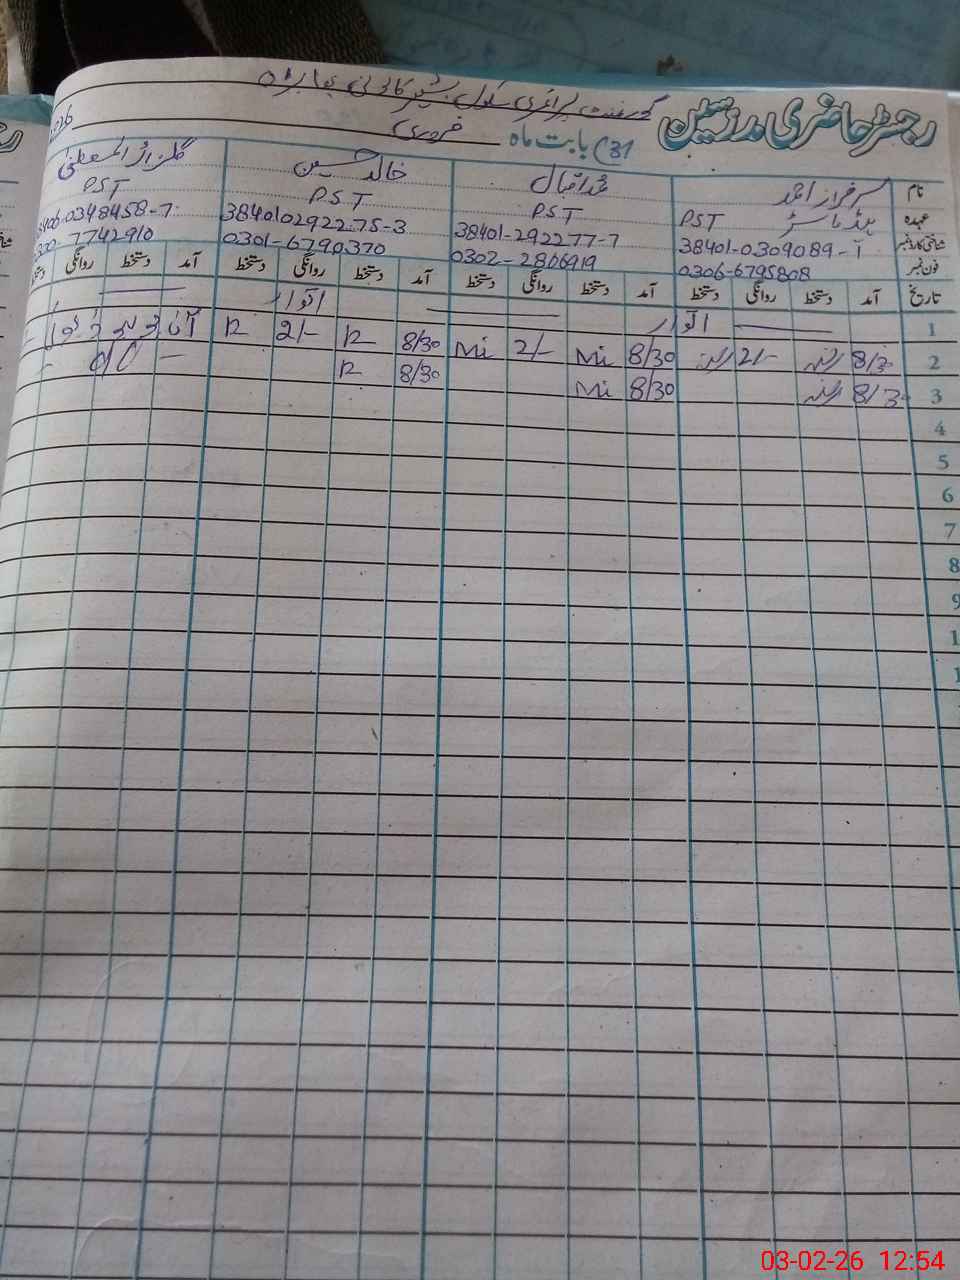 رجسٹر حاضری مدرسین
گورنمنٹ پرائمری سکول
بابت ماہ فروری
نام سرفراز احمد محمد اقبال خالد حسین گلزار المصطفیٰ
عہدہ ہیڈ ماسٹر PST PST PST PST
شناختی کارڈ نمبر 38401-0309089- 38401-292277-7 384010292275-3 0348458-7
فون نمبر 0306-6795808 0302-2806919 0301-6790370 7742910
تاریخ آمد دستخط روانگی دستخط آمد دستخط روانگی دستخط آمد دستخط روانگی دستخط آمد دستخط روانگی
1 اتوار اتوار
2 8/30 2/- 8/30 Mi 2/- Mi 8/30 R 2/- R
3 8/30 8/30 Mi 8/30 R
4
5
6
7
8
9
03-02-26 12:54